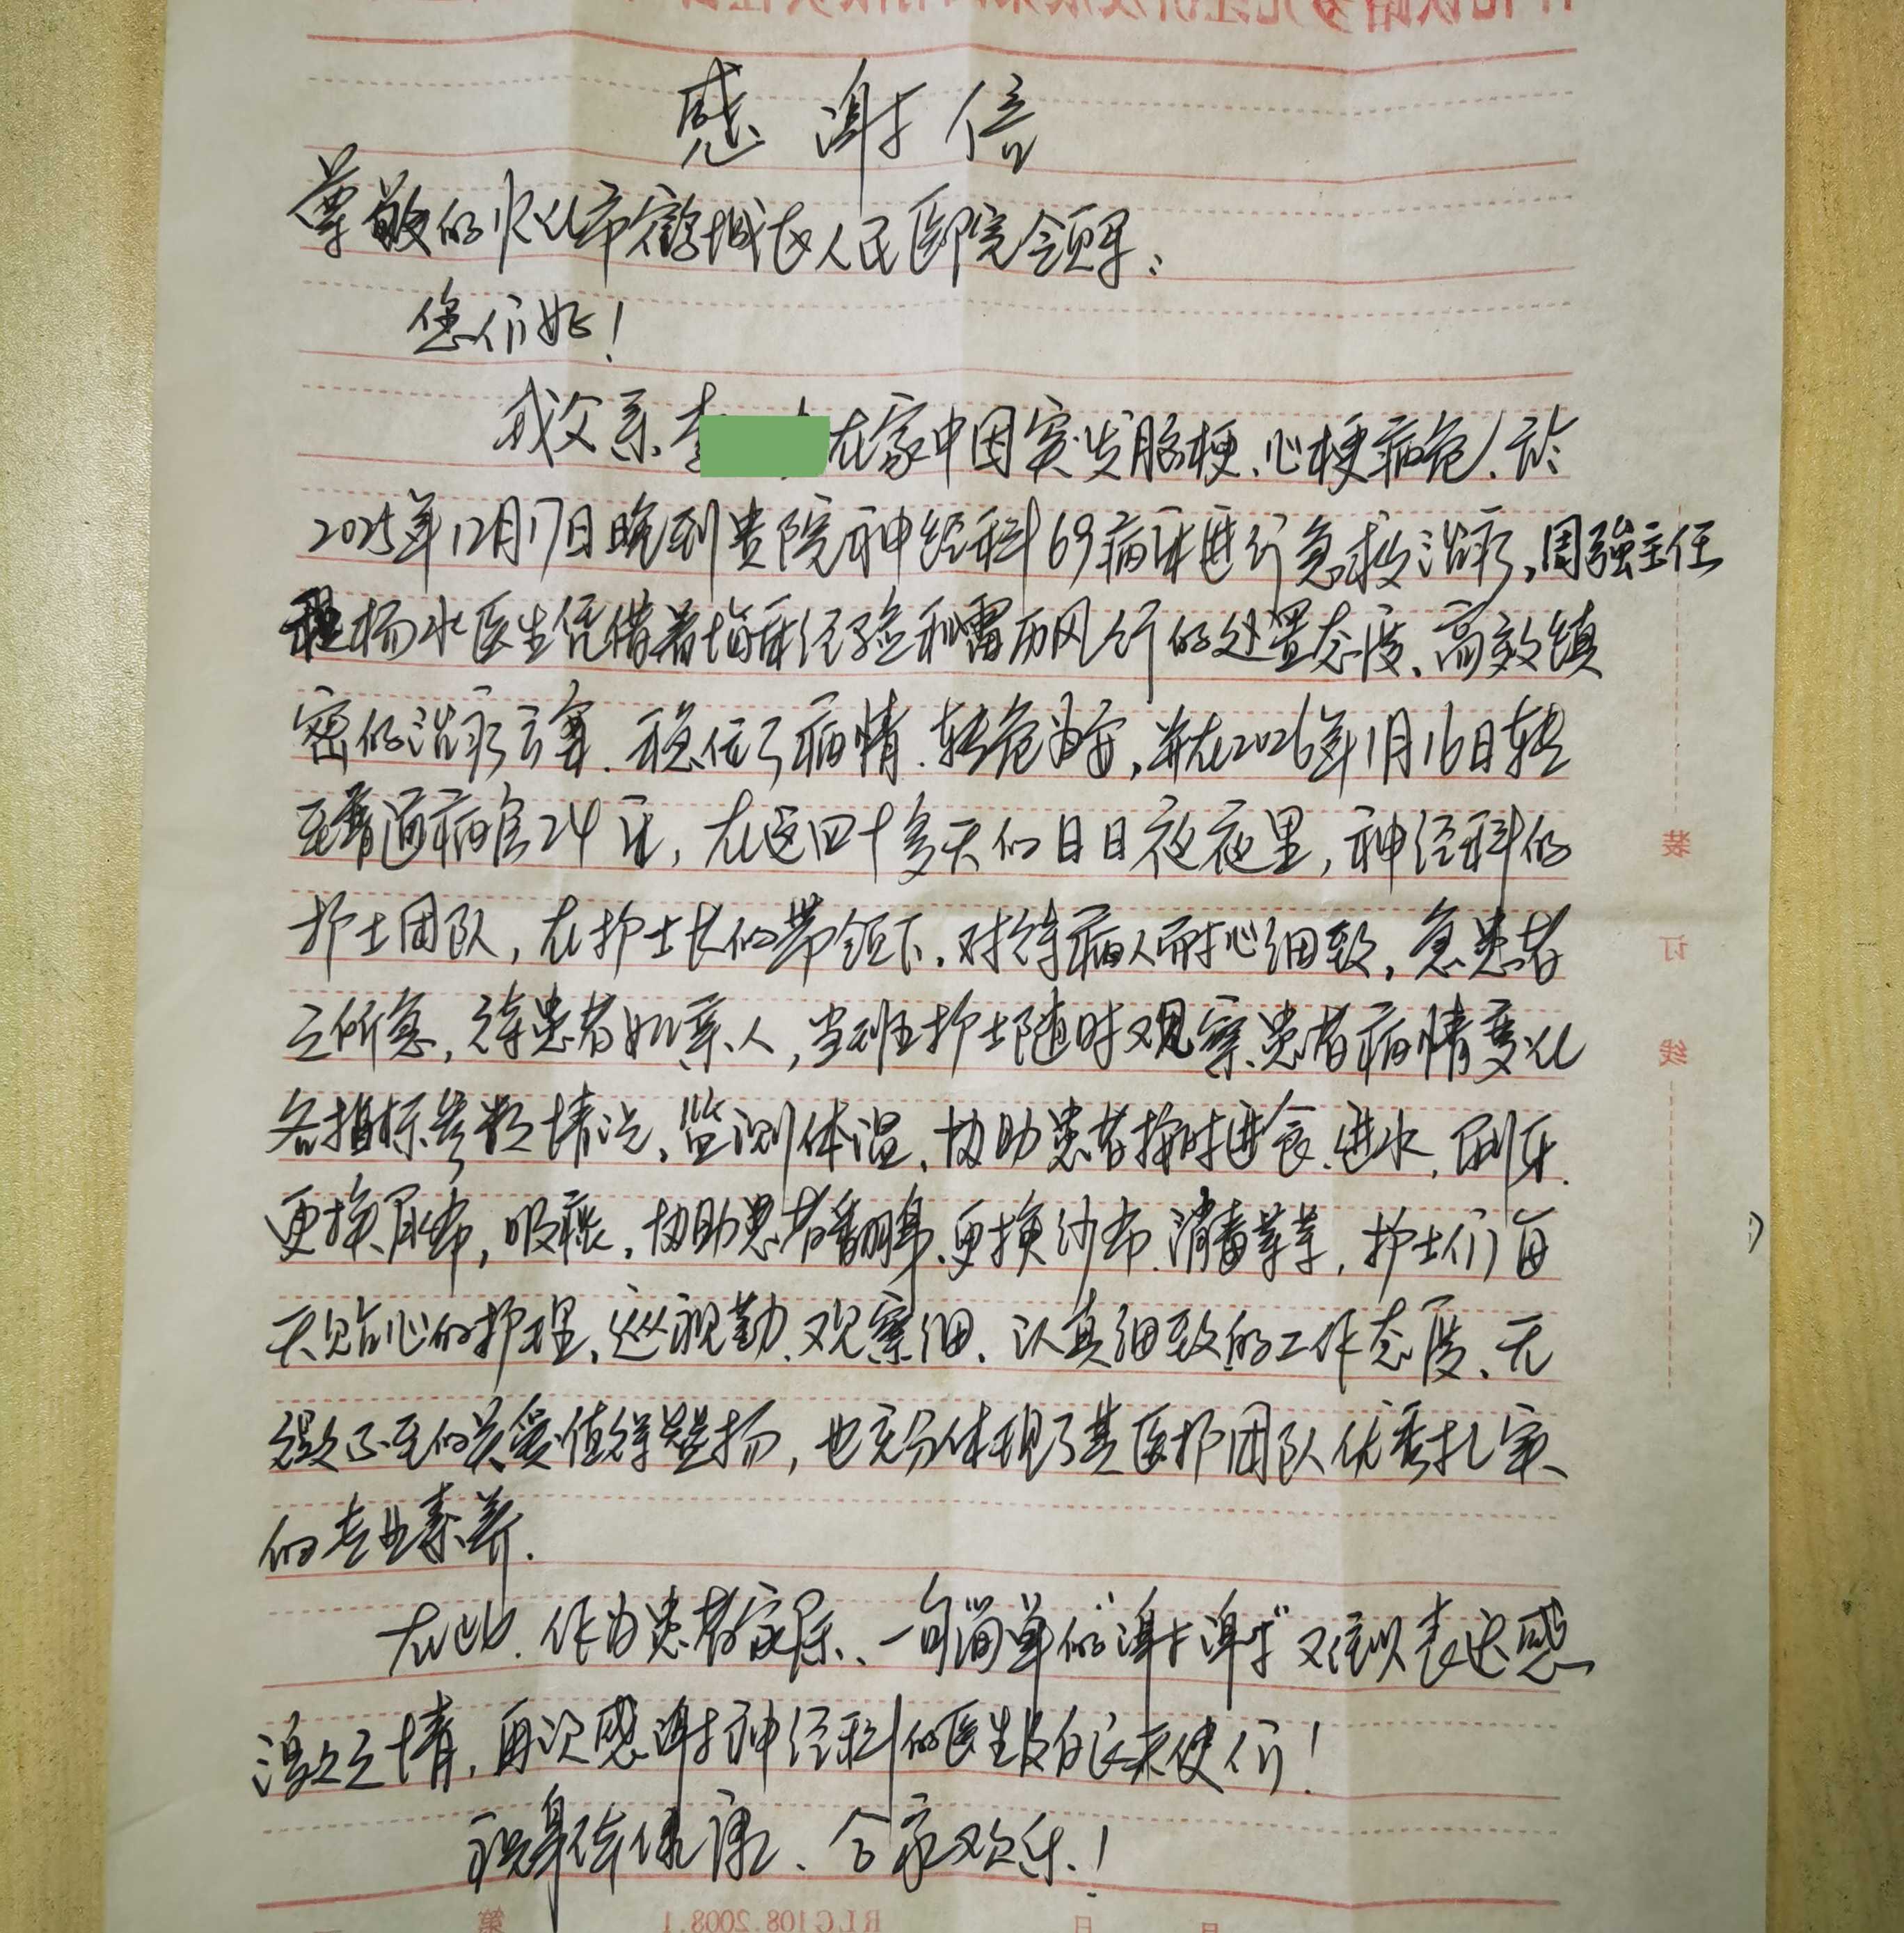 感谢信
尊敬的怀化市鹤城区人民医院领导：
您们好！
我父亲李 在家中因突发脑梗、心梗病危，于
2025年12月17日晚到贵院神经科69病床进行急救治疗，周强主任
程杨水医生凭借着 经验和雷厉风行的处置态度、高效缜
密的治疗方案，稳住了病情，转危为安，并在2026年1月16日转
至普通病房24床，在这四十多天的日日夜夜里，神经科的
护士团队，在护士长的带领下，对待病人耐心细致，急患者
之所急，待患者如亲人，当班护士随时观察患者病情变化
各指标参数情况，监测体温，协助患者按时进食、进水，刷牙、
更换尿布，吸痰，协助患者翻身、更换纱布、消毒等等，护士们每
天贴心的护理，巡视勤、观察细、认真细致的工作态度、无
微不至的关爱值得赞扬，也充分体现了其医护团队优秀扎实
的专业素养．
在此，作为患者家属、一句简单的“谢谢”难以表达感
激之情，再次感谢神经科的医生及白衣天使们！
祝身体健康、合家欢乐！
装
订
线
第
RLG108.2008.1
日
月